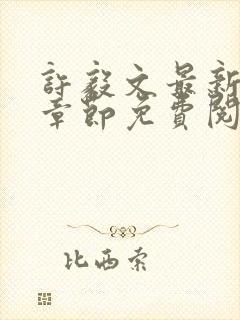 許毅文最新
章節免費閱
比西索